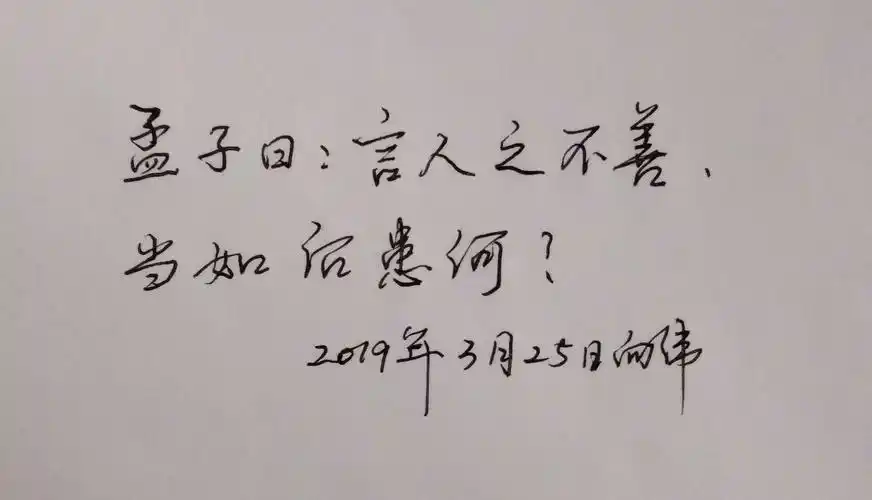 孟子曰：言人之不善，
当如后患何？
2019年3月25日向伟